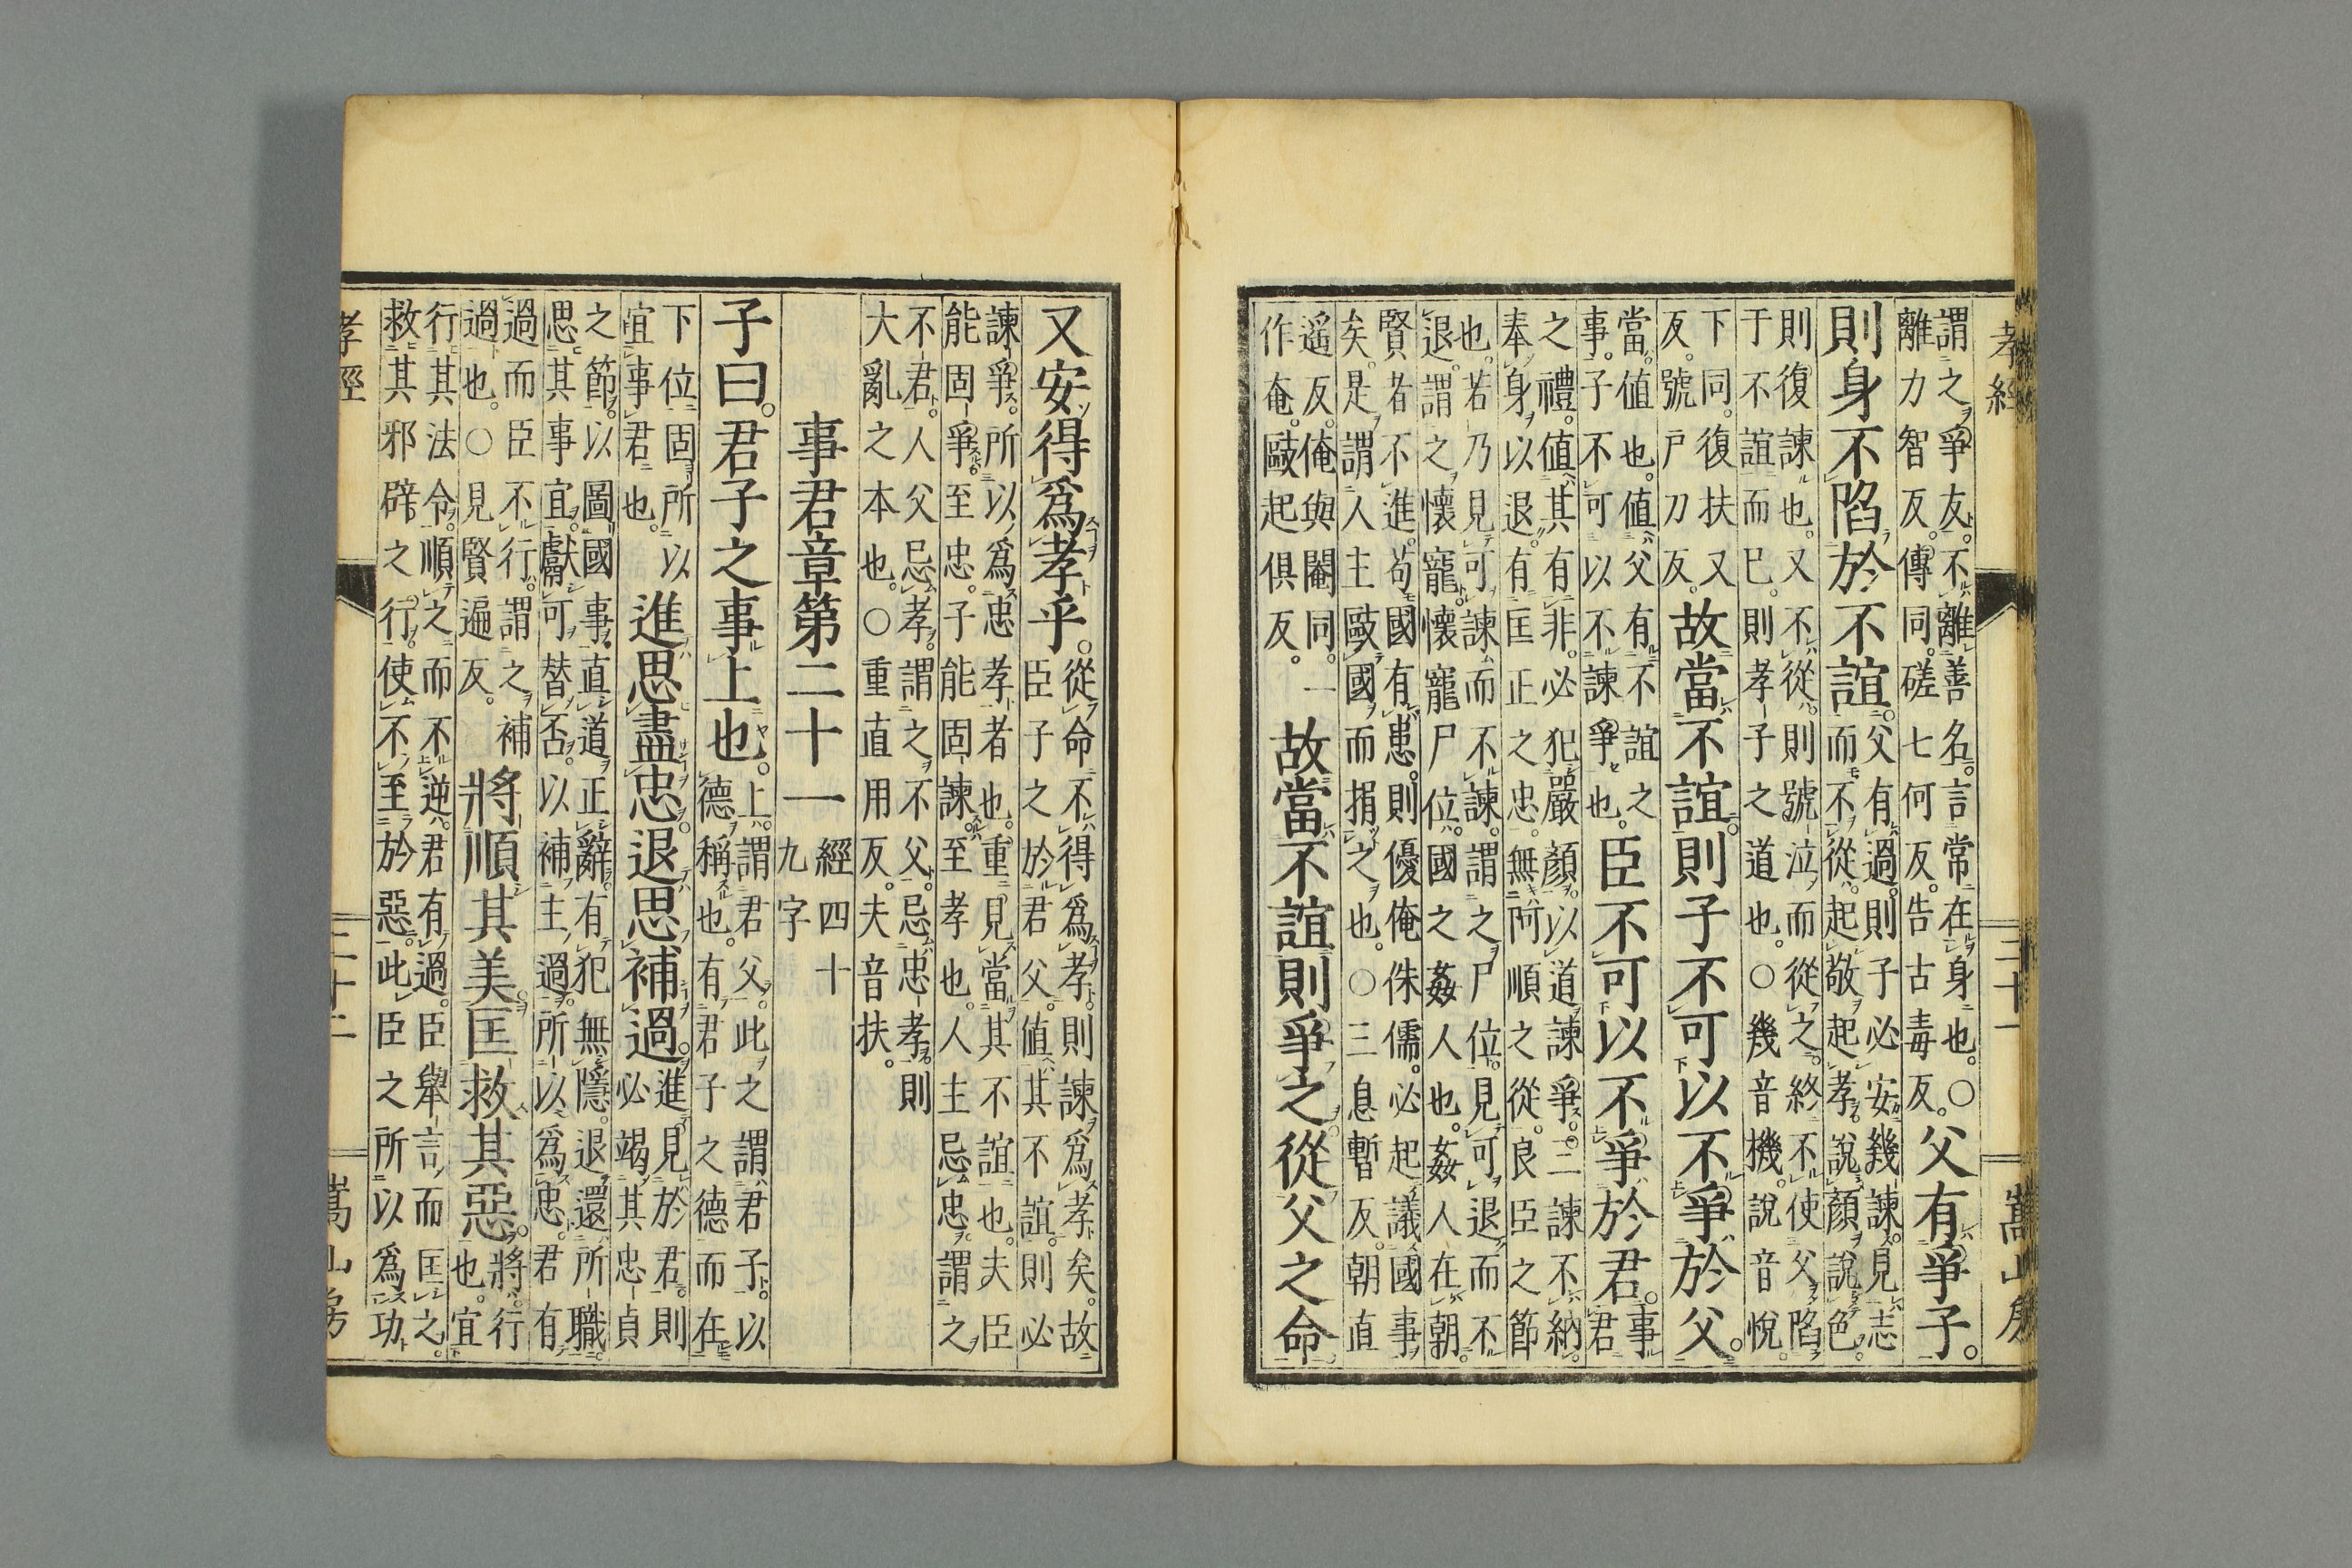 孝經　三十一　嵩山房
謂之爭友。不離善名。言常在身也。○
離力智反。傳同。磋七何反。告古毒反。
父有爭子。
則身不陷於不誼。
父有過。則子必安幾諫。見志
而不從。起敬起孝。說顏說色。
則復諫也。又不從。則號泣而從之。終不使父陷
于不誼而已。則孝子之道也。○幾音機。說音悅。
下同。復扶又
反。號戸刀反。
故當不誼。則子不可以不爭於父。
當。值也。值父有不誼之
事。子不可以不諫爭也。
臣不可以不爭於君。
事
君
之禮。值其有非。必犯嚴顏。以道諫爭。三諫不納。
奉身以退。有匡正之忠。無阿順之從。良臣之節
也。若乃見可諫而不諫。謂之尸位。見可退而不
退。謂之懷寵。懷寵尸位。國之姦人也。姦人在朝。
賢者不進。苟國有患。則優俺侏儒。必起議國事
矣。是謂人主敺國而捐之也。○三息暫反。朝直
遥反。俺與閹同。一
作奄。敺起俱反。
故當不誼則爭之。從父之命
又安得爲孝乎。
從命不得爲孝。則諫爲孝矣。故
臣子之於君父。值其不誼。則必
諫爭。所以爲忠孝者也。重見當其不誼也。夫臣
能固爭。至忠。子能固諫。至孝也。人主忌忠。謂之
不君。人父忌孝。謂之不父。忌忠孝。則
大亂之本也。○重直用反。夫音扶。
事君章第二十一
經四十
九字
子曰。君子之事上也。
上。謂君父。此之謂君子。以
德稱也。有君子之德而在
下位。固所以
宜事君也。
進思盡忠。退思補過。
進見於君。則
必竭其忠貞
之節。以圖國事。直道正辭。有犯無隱。退還所職。
思其事宜。獻可替否。以補主過。所以爲忠。君有
過而臣不行。謂之補
過也。○見賢遍反。
將順其美。匡救其惡。
將。行
也。宜
行其法令。順之而不逆。君有過。臣舉言而匡之。
救其邪辟之行。使不至於惡。此臣之所以爲功
孝經　三十二　嵩山房